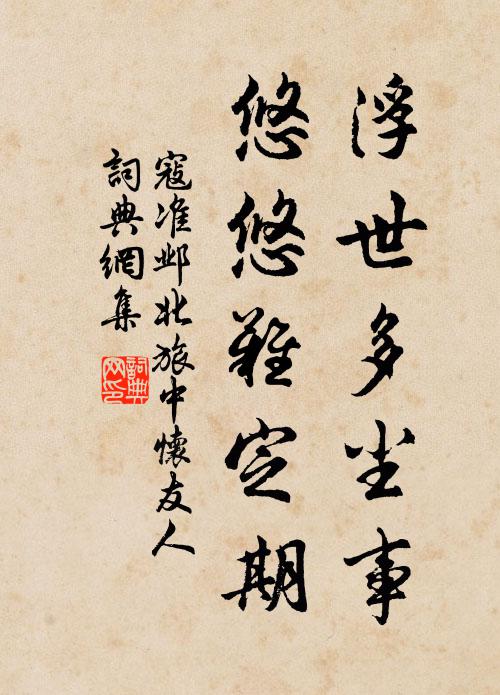 浮世多尘事
悠悠難定期
寇准邺北旅中懷友人
詞典網集
詞典网印